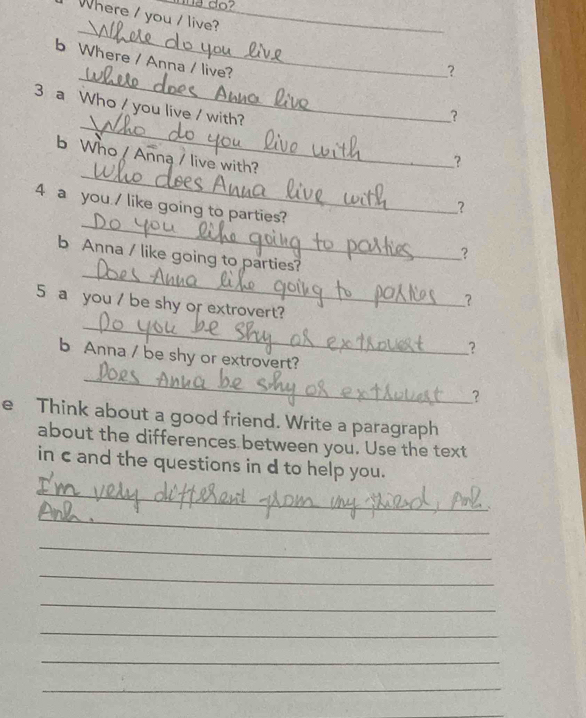 do?
Where / you / live?
Where do you live
?
b Where / Anna / live?
Where does Anna live
?
3 a Who / you live / with?
Who do you live with
?
b Who / Anna / live with?
Who does Anna live with
?
4 a you / like going to parties?
Do you like going to parties
?
b Anna / like going to parties?
Does Anna like going to parties
?
5 a you / be shy or extrovert?
Do you be shy or extrovert
?
b Anna / be shy or extrovert?
Does Anna be shy or extrovert
?
e Think about a good friend. Write a paragraph
about the differences between you. Use the text
in c and the questions in d to help you.
I'm very different from my friend,